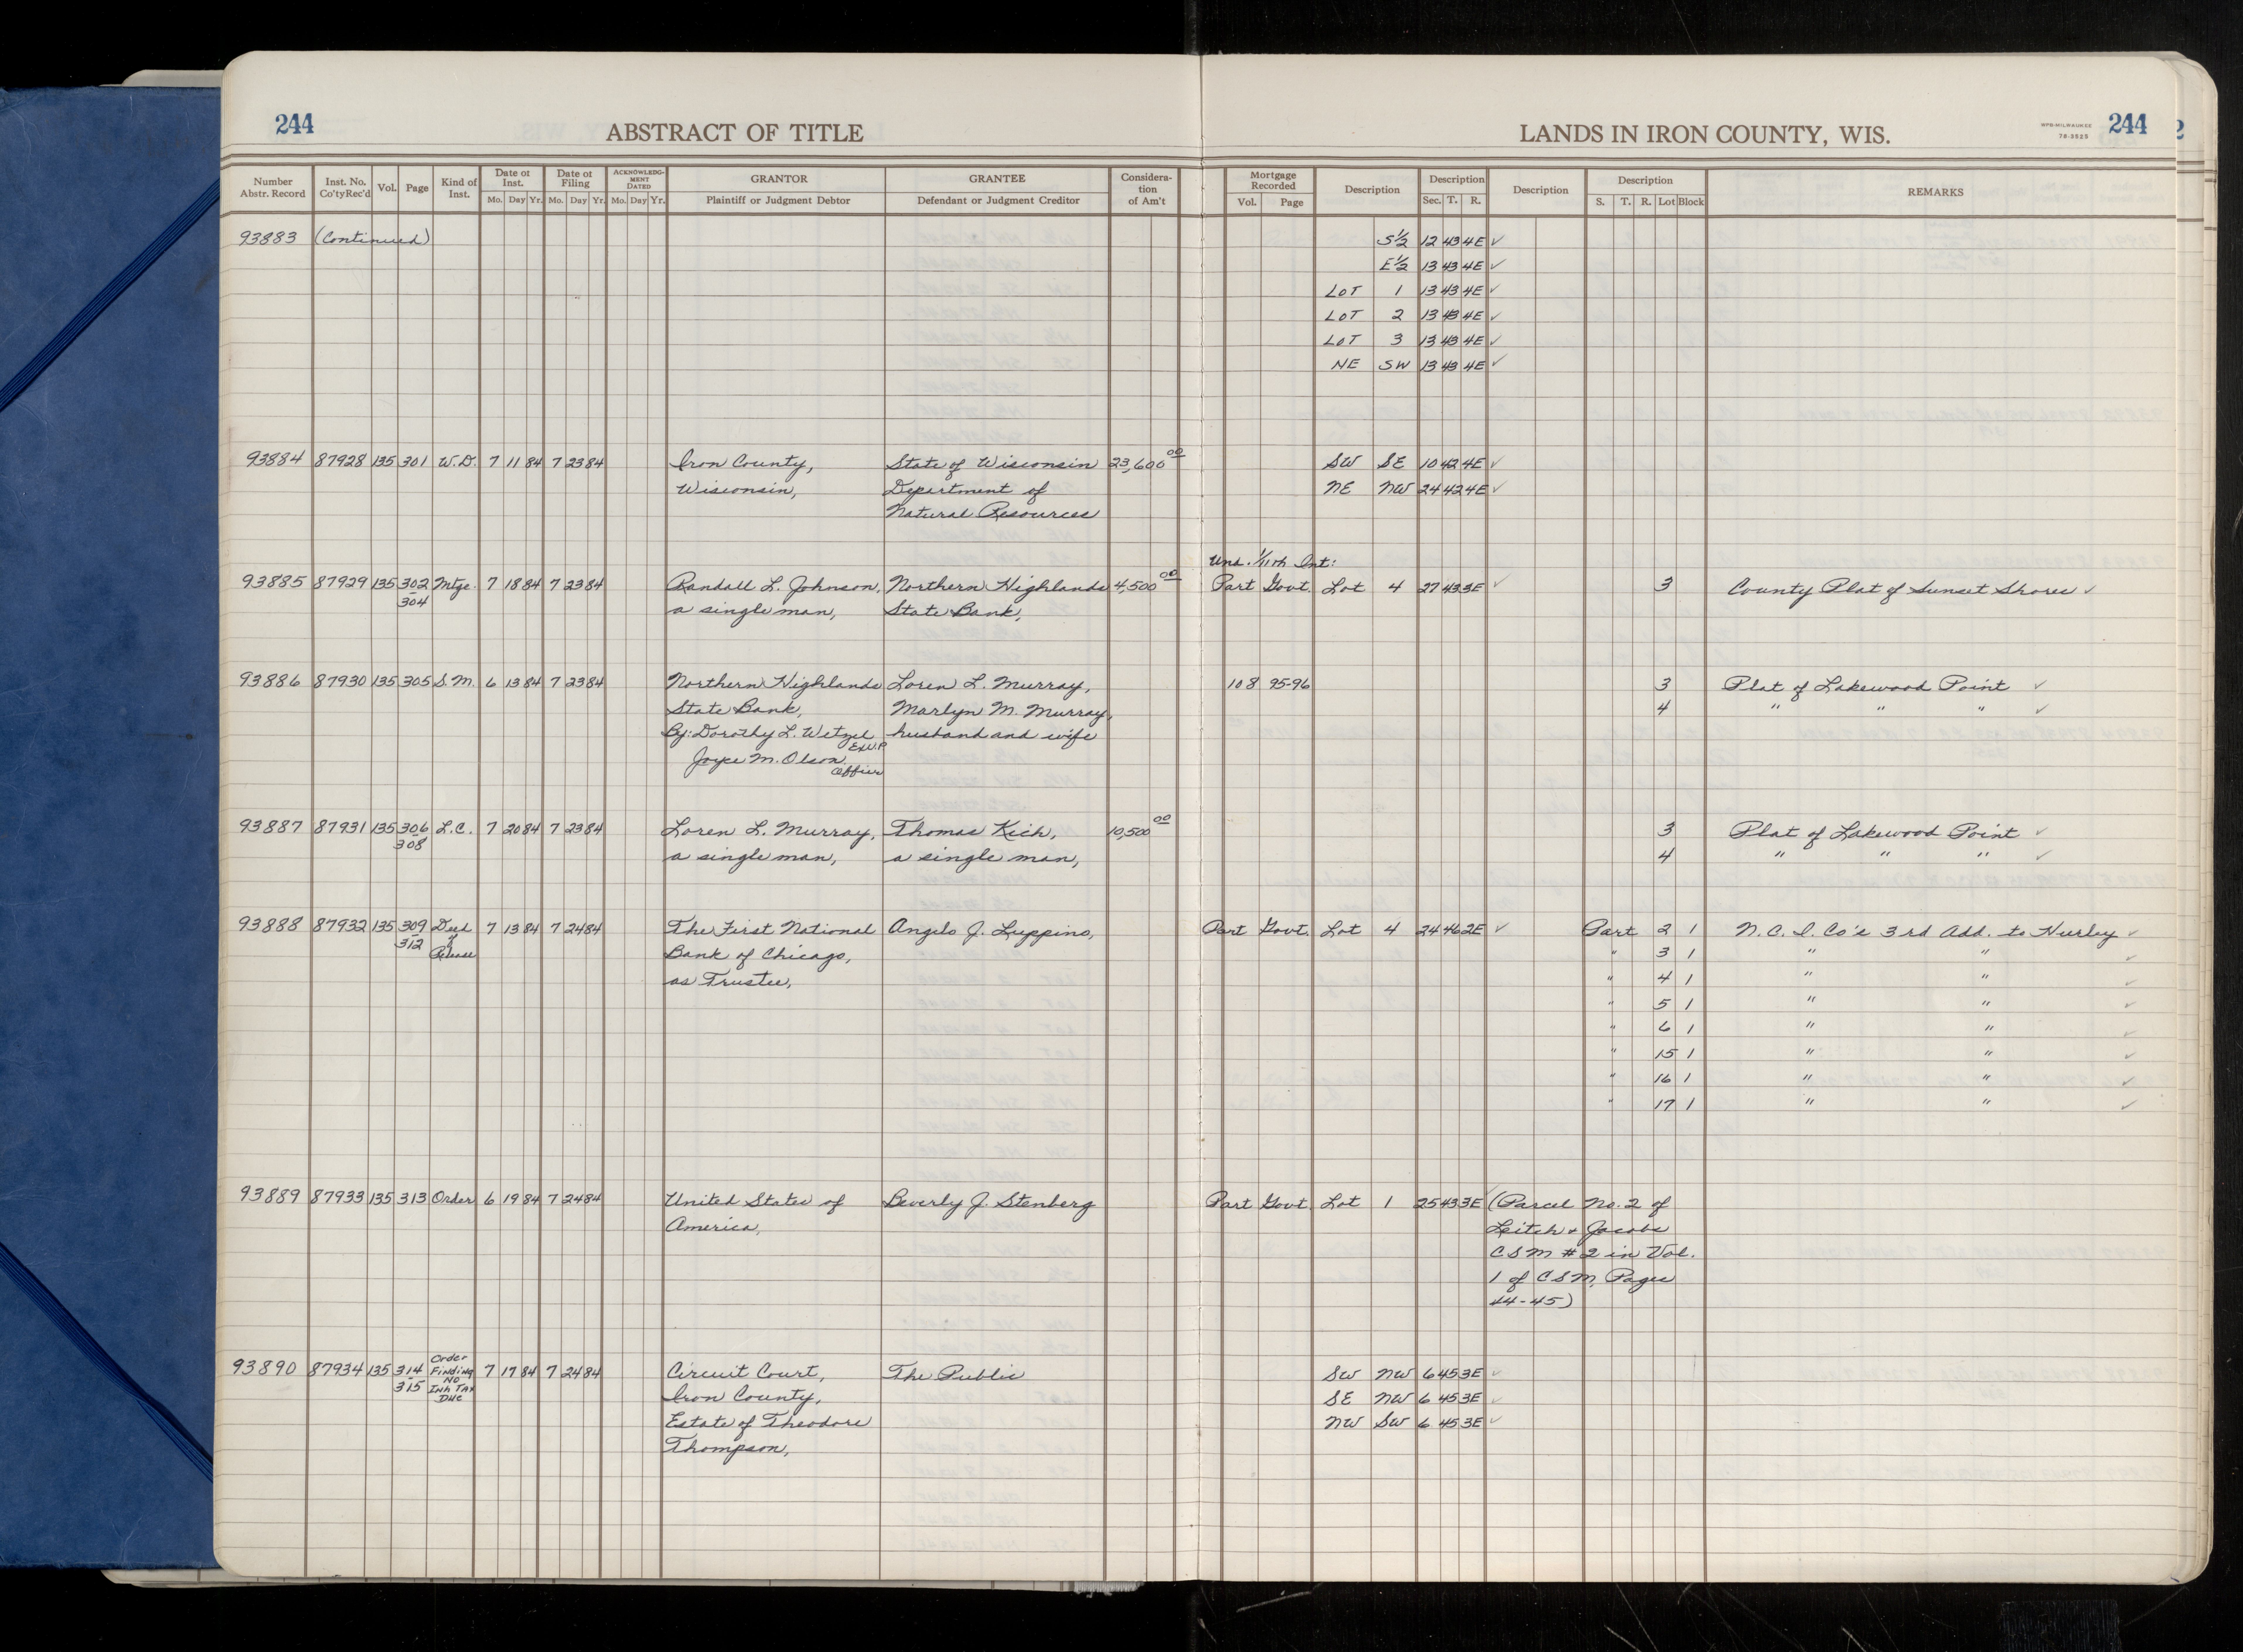 244 ABSTRACT OF TITLE LANDS IN IRON COUNTY, WIS. WPB-MILWAUKEE 78-3525 244
Number Abstr. Record Inst. No. Co'tyRec'd Vol. Page Kind of Inst. Date of Inst. Mo. Day Yr. Date of Filing Mo. Day Yr. ACKNOWLEDGMENT DATED Mo. Day Yr. GRANTOR Plaintiff or Judgment Debtor GRANTEE Defendant or Judgment Creditor Consideration of Am't Mortgage Recorded Vol. Page Description Description Sec. T. R. Description Description S. T. R. Lot Block REMARKS
93883 (Continued) S½ 12 43 4E ✓
E½ 13 43 4E ✓
LOT 1 13 43 4E ✓
LOT 2 13 43 4E ✓
LOT 3 13 43 4E ✓
NE SW 13 43 4E ✓
93884 87928 135 301 W.D. 7 11 84 7 23 84 Iron County, State of Wisconsin 23,600 00 SW SE 10 42 4E ✓
Wisconsin, Department of NE NW 24 42 4E ✓
Natural Resources
Und. 1/11th Int:
93885 87929 135 302 Mtge. 7 18 84 7 23 84 Randall L. Johnson, Northern Highlands 4,500 00 Part Govt. Lot 4 27 43 3E ✓ 3 County Plat of Sunset Shores ✓
-304 a single man, State Bank,
93886 87930 135 305 S.M. 6 13 84 7 23 84 Northern Highlands Loren L. Murray, 108 95-96 3 Plat of Lakewood Point ✓
State Bank, Marlyn M. Murray, 4 " " " ✓
By: Dorothy L. Wetzel husband and wife
Ex.V.P.
Joyce M. Olson
Officer
93887 87931 135 306 L.C. 7 20 84 7 23 84 Loren L. Murray, Thomas Kich, 10,500 00 3 Plat of Lakewood Point ✓
-308 a single man, a single man, 4 " " " ✓
93888 87932 135 309 Deed 7 13 84 7 24 84 The First National Angelo J. Luppino, Part Govt. Lot 4 24 46 2E ✓ Part 2 1 N.C.I. Co's 3rd Add. to Hurley ✓
-312 of Release Bank of Chicago, " 3 1 " " ✓
as Trustee, " 4 1 " " ✓
" 5 1 " " ✓
" 6 1 " " ✓
" 15 1 " " ✓
" 16 1 " " ✓
" 17 1 " " ✓
93889 87933 135 313 Order 6 19 84 7 24 84 United States of Beverly J. Stenberg Part Govt. Lot 1 25 43 3E (Parcel No. 2 of
America, Leitch & Jacobs
CSM #2 in Vol.
1 of CSM, Pages
44-45)
93890 87934 135 314 Order Finding No Inh Tax Due 7 17 84 7 24 84 Circuit Court, The Public SW NW 6 45 3E ✓
-315 Iron County, SE NW 6 45 3E ✓
Estate of Theodore NW SW 6 45 3E ✓
Thompson,